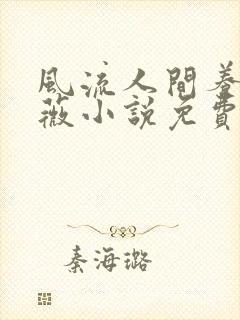 風流人間養
薇小說免費
秦海璐